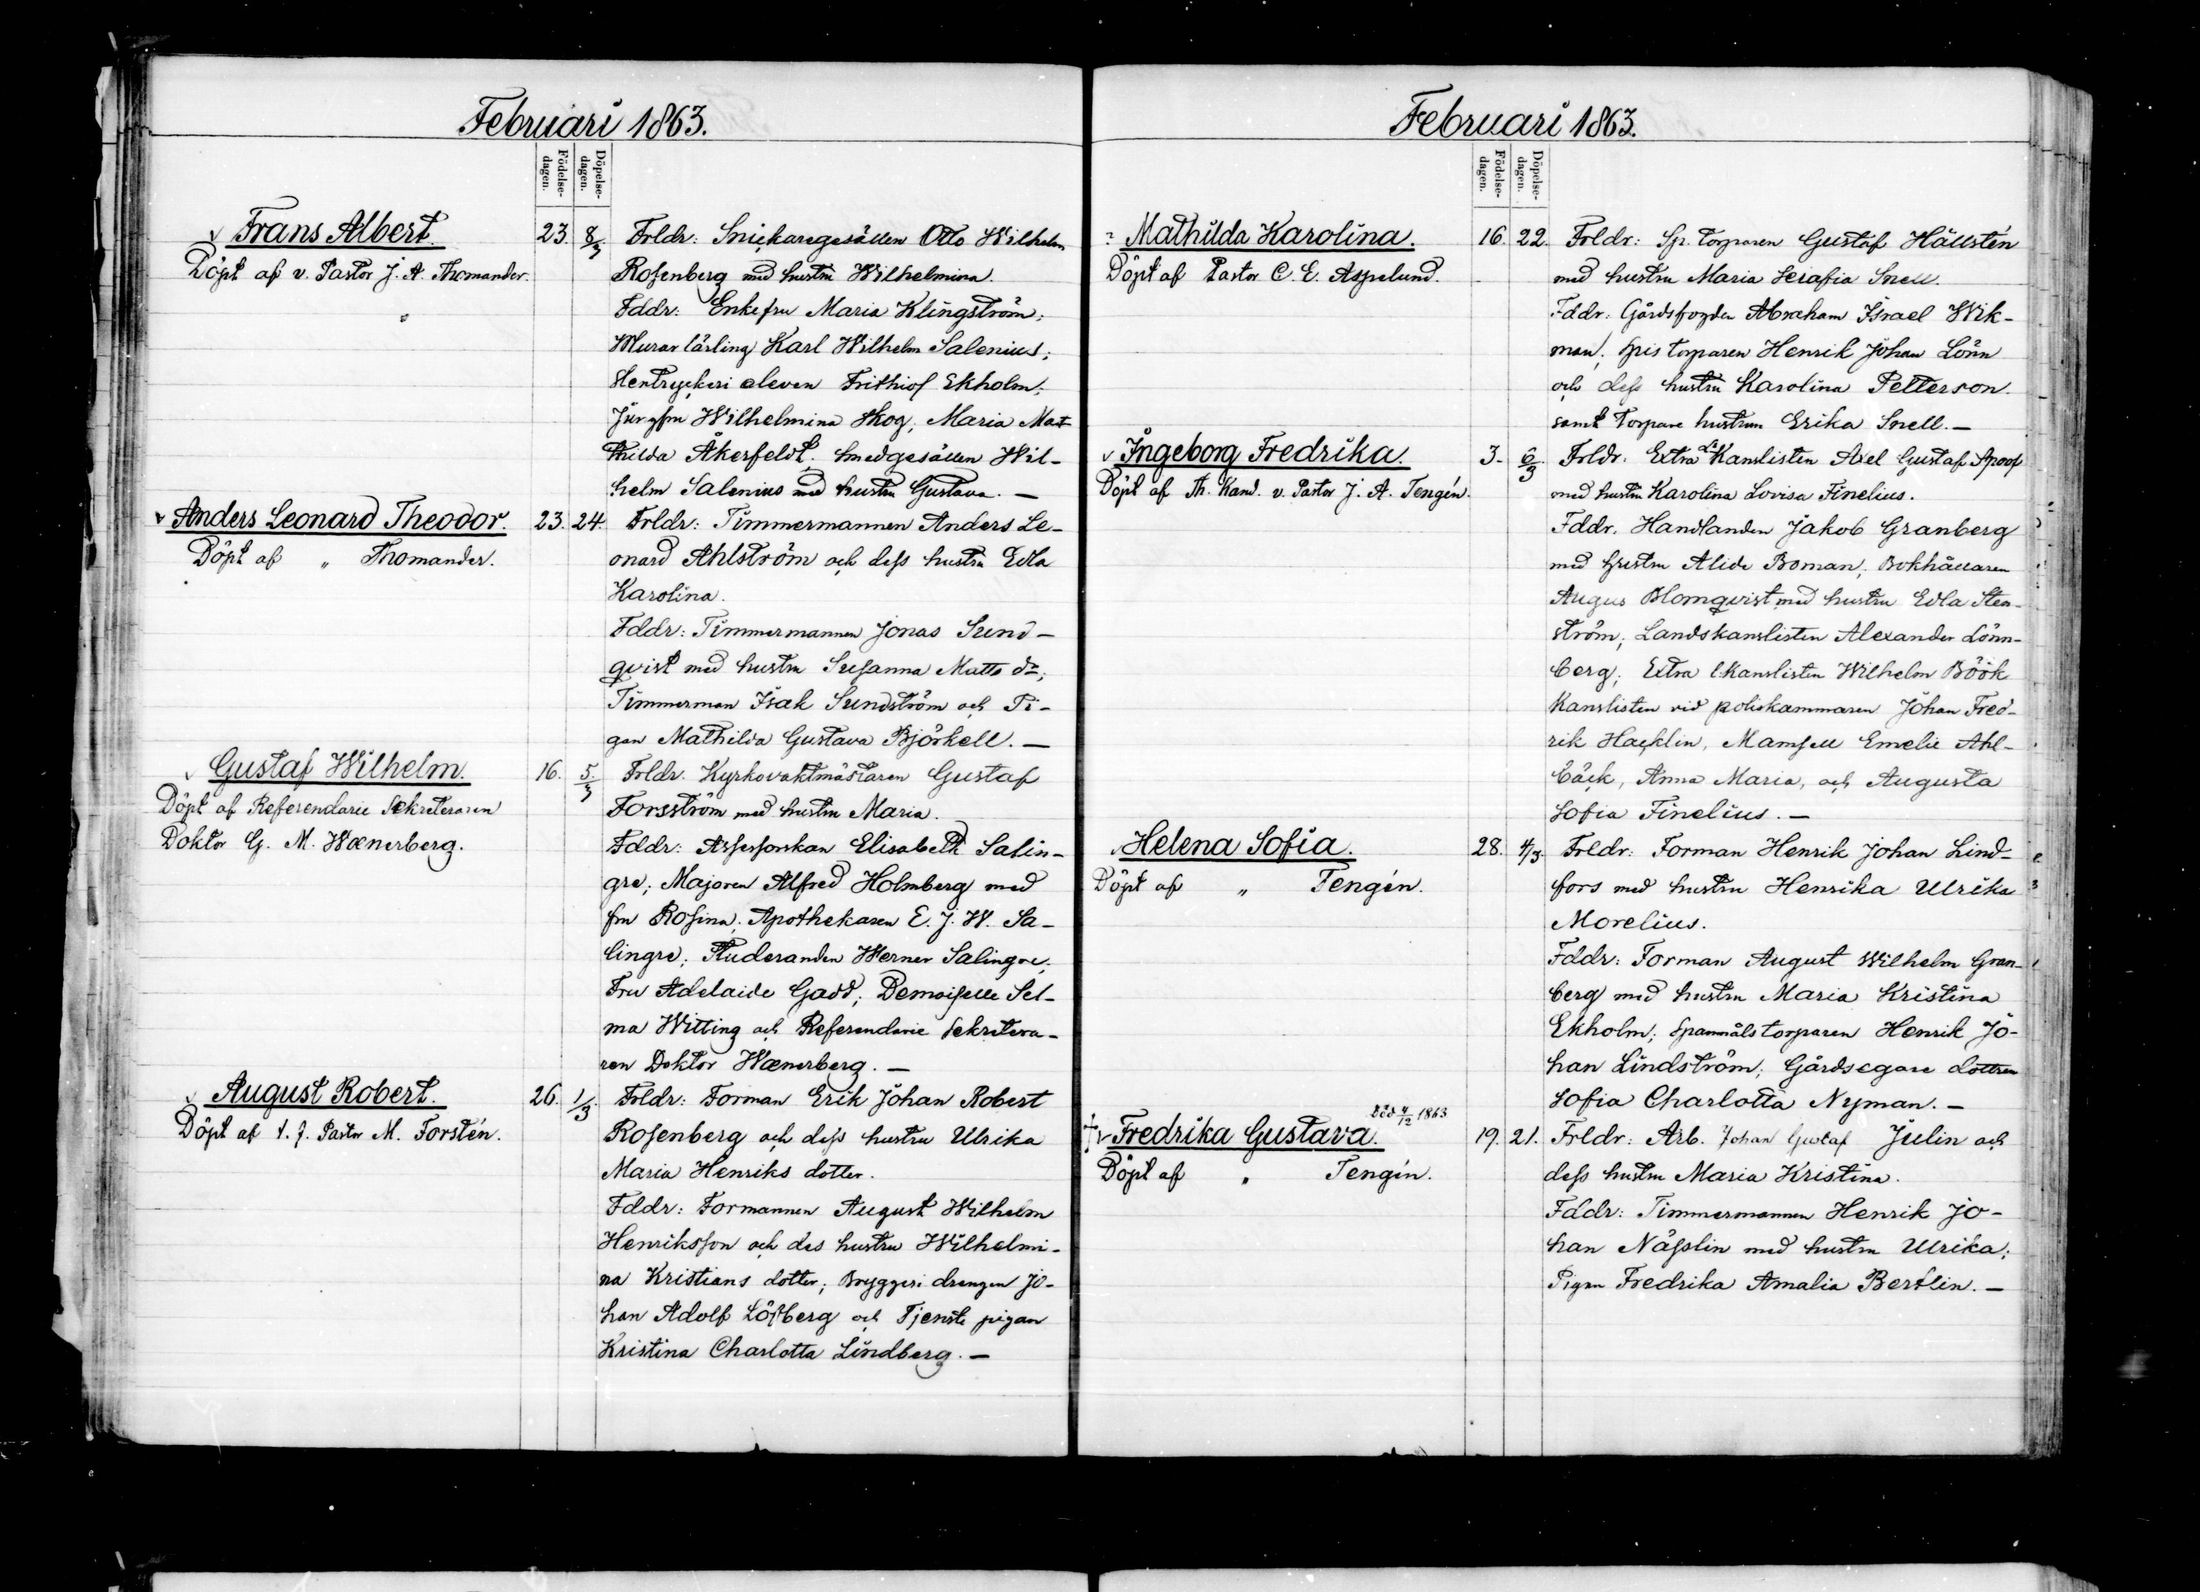 Februari 1863.
Födelse-
dagen.
Döpelse-
dagen.
v Frans Albert. 23. 8/3 Frldr: Snickaregesällen Otto Wilhelm
Döpt af v. Pastor J. A. Thomander. Rosenberg med hustru Wilhelmina.
Fddr: Enkefru Maria Klingström;
Murarlärling Karl Wilhelm Salenius;
Stentryckeri eleven Frithiof Ekholm;
Jungfru Wilhelmina Skog, Maria Mat-
hilda Åkerfeldt; Smedgesällen Wil-
helm Salenius med hustru Gustava. —
v Anders Leonard Theodor. 23. 24. Frldr: Timmermannen Anders Le-
Döpt af „ Thomander. onard Ahlström och dess hustru Edla
Karolina.
Fddr: Timmermannen Jonas Sund-
qvist med hustru Susanna Matts dr;
Timmerman Isak Sundström och Pi-
gan Mathilda Gustava Björkell. —
v Gustaf Wilhelm. 16. 5/3 Frldr. Kyrkovaktmästaren Gustaf
Döpt af Referendarie Sekreteraren Forsström med hustru Maria.
Doktor G. M. Wænerberg. Fddr: Assessorskan Elisabeth Salin-
gre; Majoren Alfred Holmberg med
fru Rosina; Apothekaren E. J. W. Sa-
lingre; Studeranden Werner Salingre;
Fru Adelaide Gadd; Demoiselle Sel-
ma Witting och Referendarie Sekretera-
ren Doktor Wænerberg. —
v August Robert. 26. 1/3 Frldr: Forman Erik Johan Robert
Döpt af Pastor M. Forstén. Rosenberg och dess hustru Ulrika
Maria Henriks dotter.
Fddr: Formannen August Wilhelm
Henriksson och des hustru Wilhelmi-
na Kristians dotter; Bryggeri drengen Jo-
han Adolf Löfberg och Tjenste pigan
Kristina Charlotta Lindberg. —
Februari 1863.
Födelse-
dagen.
Döpelse-
dagen.
Mathilda Karolina. 16. 22. Frldr: Sp. torparen Gustaf Hällstén
Döpt af Pastor C. E. Aspelund. med hustru Maria Serafia Snell.
Fddr: Gårdsfogden Abraham Israel Wik-
man; Spis torparen Henrik Johan Lönn
och dess hustru Karolina Petterson.
samt Torpare hustrun Erika Snell. —
v Ingeborg Fredrika. 3. 6/3 Frldr: Extra Kanslisten Axel Gustaf Spoof
Döpt af Th. Kand. v. Pastor J. A. Tengén. med hustru Karolina Lovisa Finelius.
Fddr. Handlanden Jakob Granberg
med hustru Alide Boman; Bokhållaren
Augus Blomqvist med hustru Edla Sten-
ström; Landskanslisten Alexander Lönn-
berg; Extra Kanslisten Wilhelm Böök
Kanslisten vid poliskammaren Johan Fred-
rik Hacklin, Mamsell Emelie Ahl-
bäck, Anna Maria, och Augusta
Sofia Finelius. —
Helena Sofia. 28. 4/3. Frldr: Forman Henrik Johan Lind-
Döpt af „ Tengén. fors med hustru Henrika Ulrika
Morelius.
Fddr: Forman August Wilhelm Gran-
berg med hustru Maria Kristina
Ekholm; Spannmålstorparen Henrik Jo-
han Lindström; Gårdsegare dottren
Sofia Charlotta Nyman. —
död 4/12 1863
† v Fredrika Gustava. 19. 21. Frldr: Arb. Johan Gustaf Julin och
Döpt af „ Tengén. dess hustru Maria Kristina.
Fddr: Timmermannen Henrik Jo-
han Nässlin med hustru Ulrika;
Pigan Fredrika Amalia Bertlin. —